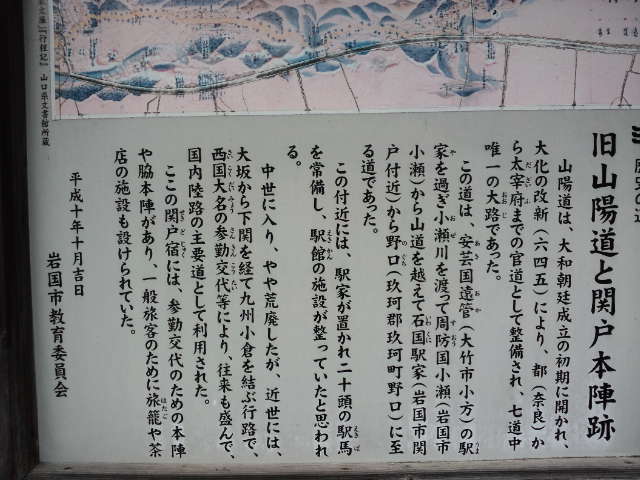 旧山陽道と関戸本陣跡
山陽道は、大和朝廷成立の初期に開かれ、
大化の改新(六四五)により、都(奈良)か
ら太宰府までの官道として整備され、七道中
唯一の大路であった。
この道は、安芸国遠管(大竹市小方)の駅
家を過ぎ小瀬川を渡って周防国小瀬(岩国市
小瀬)から山道を越えて石国駅家(岩国市関
戸付近)から野口(玖珂郡玖珂町野口)に至
る道であった。
この付近には、駅家が置かれ二十頭の駅馬
を常備し、駅館の施設が整っていたと思われ
る。
中世に入り、やや荒廃したが、近世には、
大坂から下関を経て九州小倉を結ぶ行路で、
西国大名の参勤交代等により、往来も盛んで、
国内陸路の主要道として利用された。
ここの関戸宿には、参勤交代のための本陣
や脇本陣があり、一般旅客のために旅籠や茶
店の施設も設けられていた。
平成十年十月吉日
岩国市教育委員会
『行程記』 山口県文書館所蔵